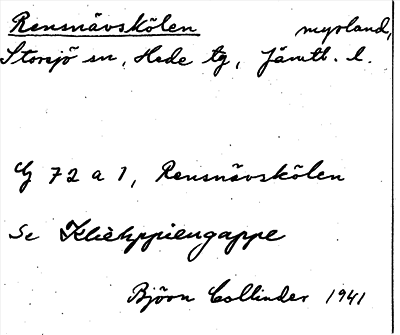 Rensnävskölen myrland,
Storsjö sn, Hede tg, Jämtl. l.
G 72 a 1, Rensnävskölen
Se Kliehppiengappe
Björn Collinder 1941